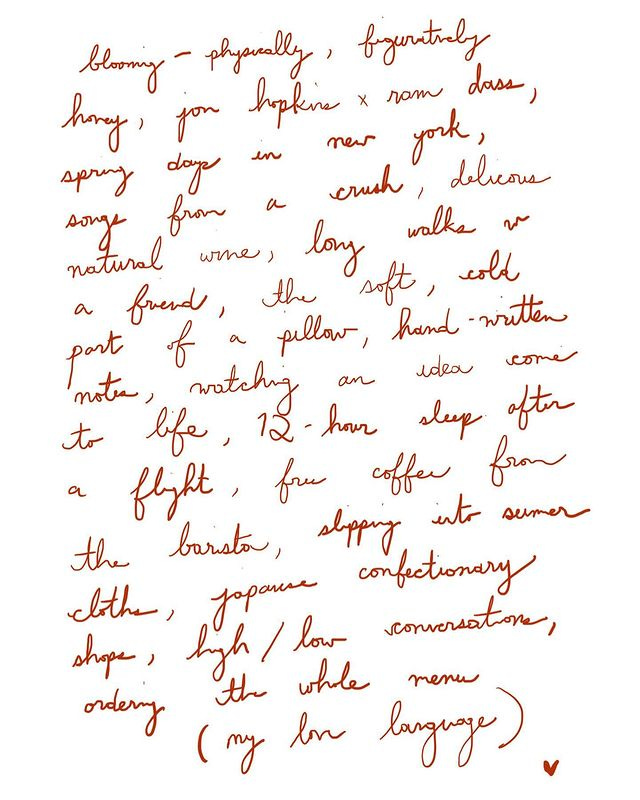 blooming - physically, figuratively
honey, jon hopkins x ram dass,
spring days in new york,
songs from a crush, delicous
natural wine, long walks w
a friend, the soft, cold
part of a pillow, hand-written
notes, watching an idea come
to life, 12-hour sleep after
a flight, free coffee from
the barista, slipping into summer
cloths, japanese confectionary
shops, high / low conversations,
ordering the whole menu
(my love language)